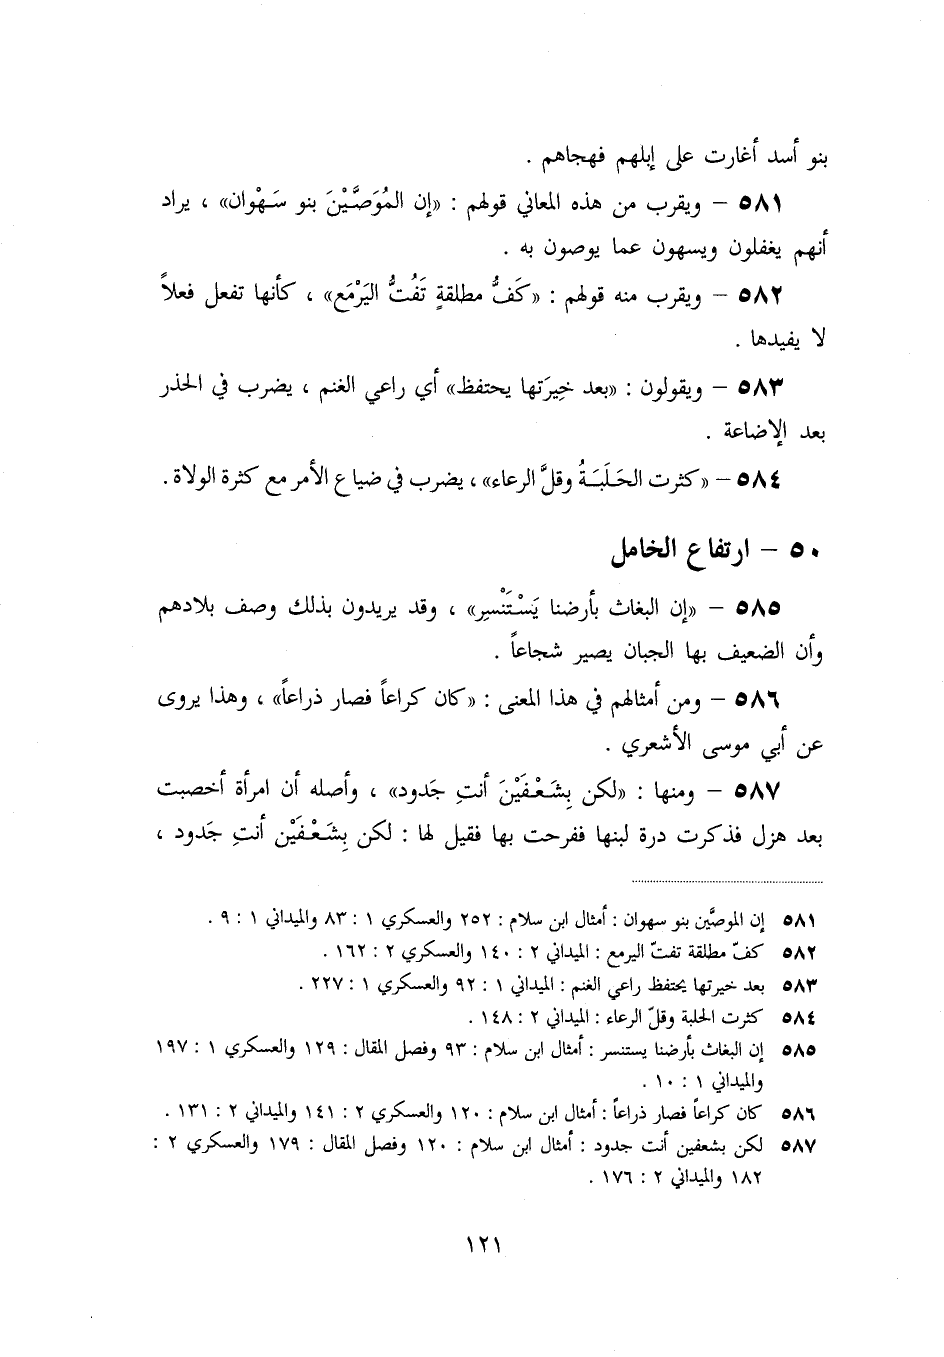 بنو أسد أغارت على إبلهم فهجاهم .
٥٨١ – ويقرب من هذه المعاني قولهم : «إن المُوَصَّيْنَ بنو سَهْوان» ، يراد
أنهم يغفلون ويسهون عما يوصون به .
٥٨٢ – ويقرب منه قولهم : «كَفُّ مطلقةٍ تَفُتُّ اليَرْمَع» ، كأنها تفعل فعلاً
لا يفيدها .
٥٨٣ – ويقولون : «بعد خِيرَتها يحتفظ» أي راعي الغنم ، يضرب في الحذر
بعد الإضاعة .
٥٨٤ – «كثرت الحَلَبَةُ وقلَّ الرعاء» ، يضرب في ضياع الأمر مع كثرة الولاة .
٥٠ – ارتفاع الخامل
٥٨٥ – «إن البغاث بأرضنا يَسْتَنْسِر» ، وقد يريدون بذلك وصف بلادهم
وأن الضعيف بها الجبان يصير شجاعاً .
٥٨٦ – ومن أمثالهم في هذا المعنى : «كان كراعاً فصار ذراعاً» ، وهذا يروى
عن أبي موسى الأشعري .
٥٨٧ – ومنها : «لكن بِشَعْفَيْنَ أنتِ جَدود» ، وأصله أن امرأة أخصبت
بعد هزل فذكرت درة لبنها ففرحت بها فقيل لها : لكن بِشَعْفَيْن أنتِ جَدود ،
٥٨١ إن الموصَّين بنو سهوان : أمثال ابن سلام : ٢٥٢ والعسكري ١ : ٨٣ والميداني ١ : ٩ .
٥٨٢ كفّ مطلقة تفتّ اليرمع : الميداني ٢ : ١٤٠ والعسكري ٢ : ١٦٢ .
٥٨٣ بعد خيرتها يحتفظ راعي الغنم : الميداني ١ : ٩٢ والعسكري ١ : ٢٢٧ .
٥٨٤ كثرت الحلبة وقلّ الرعاء : الميداني ٢ : ١٤٨ .
٥٨٥ إن البغاث بأرضنا يستنسر : أمثال ابن سلام : ٩٣ وفصل المقال : ١٢٩ والعسكري ١ : ١٩٧
والميداني ١ : ١٠ .
٥٨٦ كان كراعاً فصار ذراعاً : أمثال ابن سلام : ١٢٠ والعسكري ٢ : ١٤١ والميداني ٢ : ١٣١ .
٥٨٧ لكن بشعفين أنت جدود : أمثال ابن سلام : ١٢٠ وفصل المقال : ١٧٩ والعسكري ٢ :
١٨٢ والميداني ٢ : ١٧٦ .
١٢١